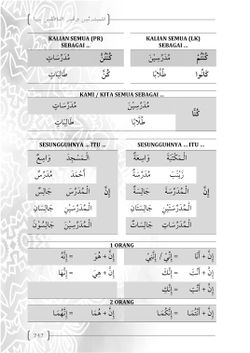 KALIAN SEMUA (PR)
SEBAGAI ...
KALIAN SEMUA (LK)
SEBAGAI ...
كُنْتُنَّ مُدَرِّسَاتٍ
طَالِبَاتٍ
كُنْتُمْ مُدَرِّسِيْنَ
كَانُوا طُلَّابًا
KAMI / KITA SEMUA SEBAGAI ...
كُنَّا
مُدَرِّسِيْنَ مُدَرِّسَاتٍ
طُلَّابًا طَالِبَاتٍ
SESUNGGUHNYA .. ITU ...
SESUNGGUHNYA .. ITU ...
إِنَّ
الْمَكْتَبَةَ وَاسِعَةٌ
زَيْنَبَ مُدَرِّسَةٌ
الْمُدَرِّسَةَ جَالِسَةٌ
الْمُدَرِّسَتَيْنِ جَالِسَتَانِ
الْمُدَرِّسَاتِ جَالِسَاتٌ
إِنَّ
الْمَسْجِدَ وَاسِعٌ
أَحْمَدَ مُدَرِّسٌ
الْمُدَرِّسَ جَالِسٌ
الْمُدَرِّسَيْنِ جَالِسَانِ
الْمُدَرِّسِيْنَ جَالِسُوْنَ
1 ORANG
إِنَّ + أَنَا = إِنِّي / إِنَّنِيْ
إِنَّ + هُوَ = إِنَّهُ
إِنَّ + أَنْتَ = إِنَّكَ
إِنَّ + هِيَ = إِنَّهَا
إِنَّ + أَنْتِ = إِنَّكِ
2 ORANG
إِنَّ + أَنْتُمَا = إِنَّكُمَا
إِنَّ + هُمَا = إِنَّهُمَا